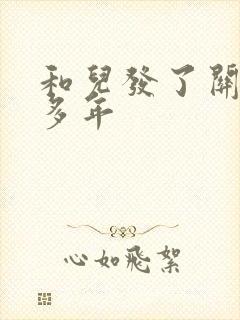 和兒發了關
多年
心如飛絮